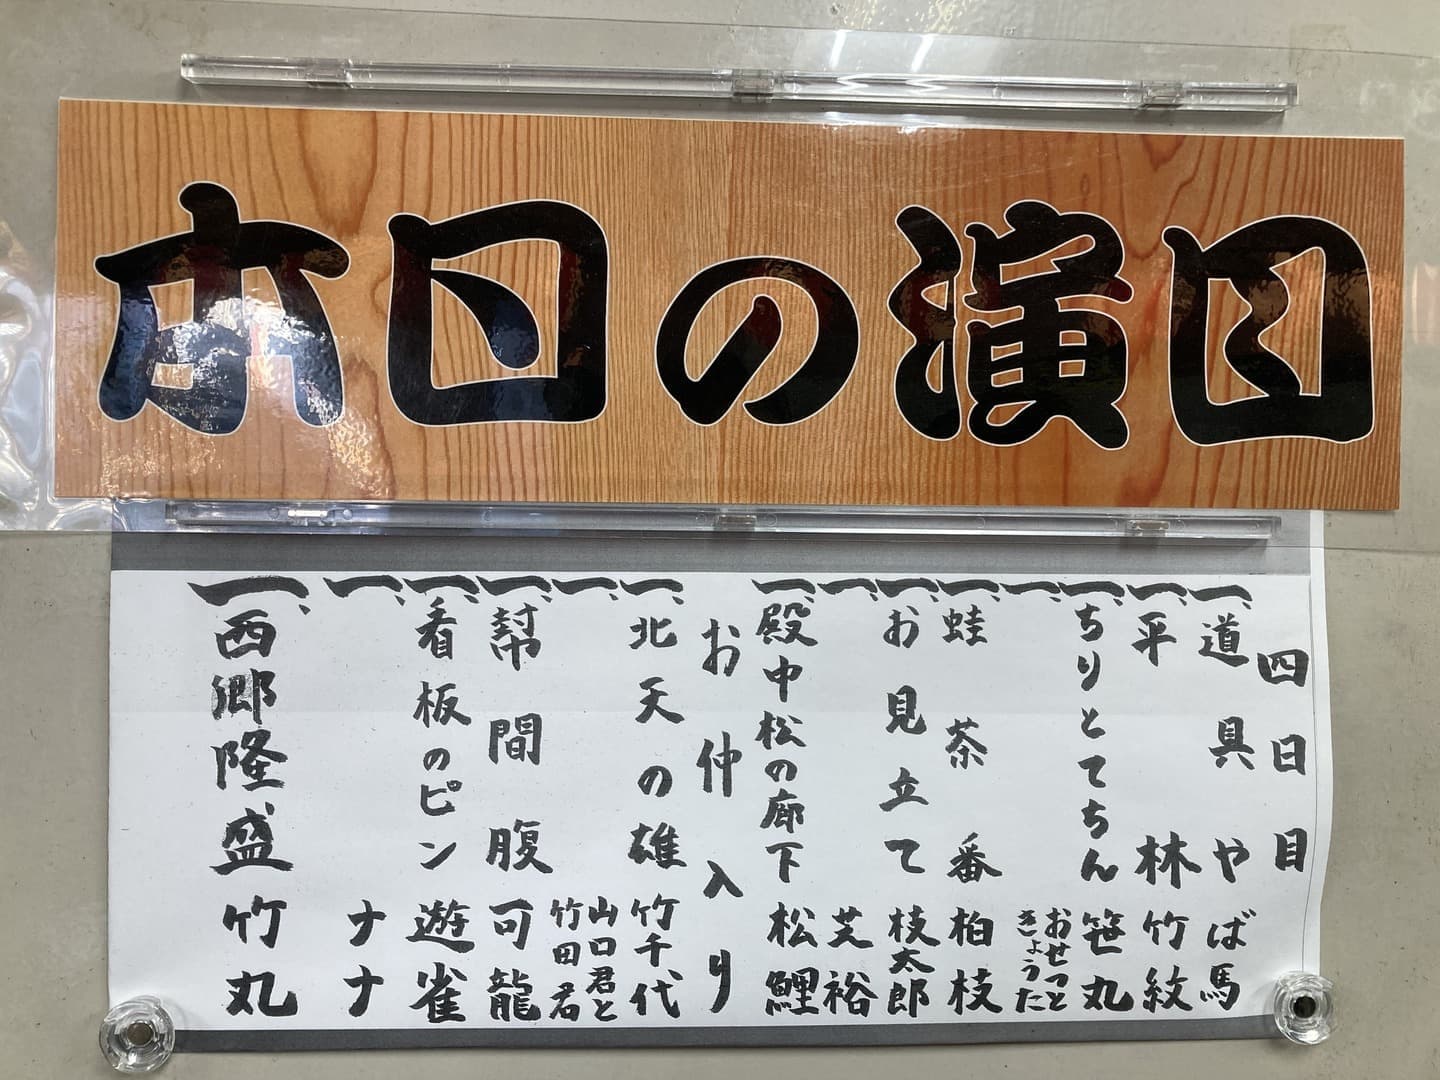 本日の演目
四日目
一、道具や ば馬
一、平林 竹紋
一、ちりとてちん 笹丸
一、おせつときょうた
一、蛙茶番 柏枝
一、お見立て 枝太郎
一、芝裕
一、殿中松の廊下 松鯉
お仲入り
一、北天の雄 竹千代
一、山口君と竹田君
一、幇間腹 可龍
一、看板のピン 遊雀
一、ナナ
一、西郷隆盛 竹丸